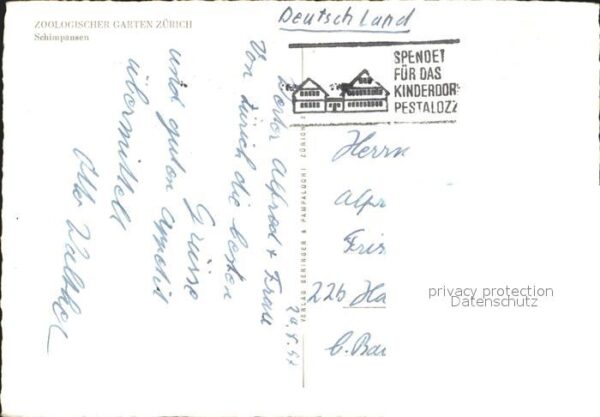 ZOOLOGISCHER GARTEN ZÜRICH
Schimpansen
Deutschland
SPENDET
FÜR DAS
KINDERDOR
PESTALOZZ
Lieber Alfred + Frau
Von Zürich die besten
Grüsse
und guten Appetit
übermittelt
Otto
VERLAG BERINGER & PAMPALUCHI ZÜRICH 2
Herrn
Alfr
Fris
22b Ha
b. Bad
privacy protection
Datenschutz